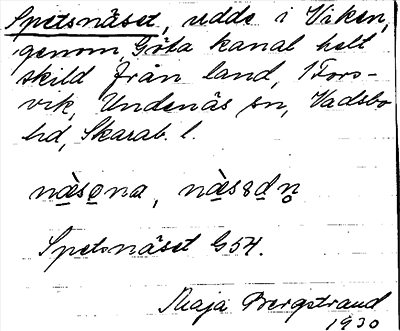 Spetsnäset, udde i Viken,
genom Göta kanal helt
skild från land, i Fors-
vik, Undenäs sn, Vadsbo
hd, Skarab. l.
näsona, näs8dn
Spetsnäset G54.
Maja Bergstrand
1930